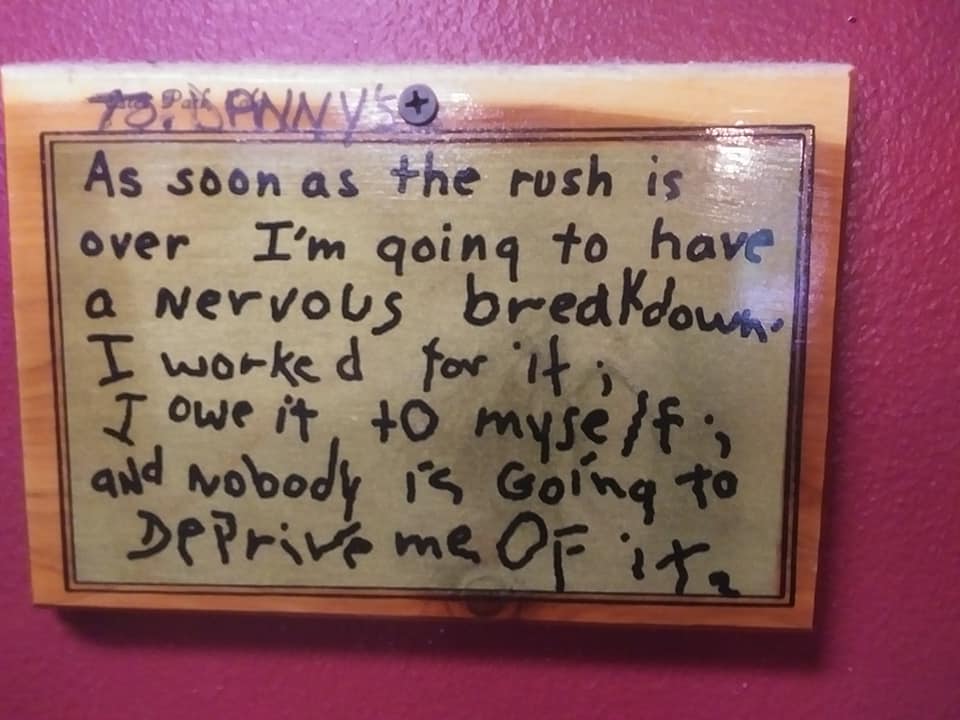 TO: DANNY'S
As soon as the rush is
over I'm going to have
a Nervous breakdown.
I worked for it;
I owe it to myself;
and Nobody is Going to
DePrive me OF it.